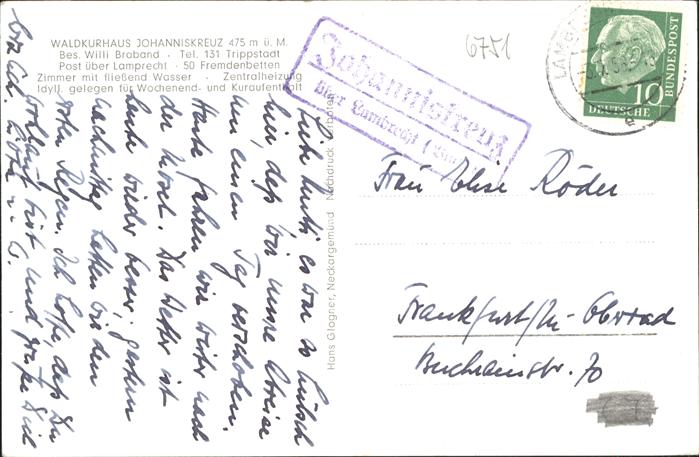 WALDKURHAUS JOHANNISKREUZ 475 m ü. M.
Bes. Willi Braband · Tel. 131 Trippstadt
Post über Lamprecht · 50 Fremdenbetten
Zimmer mit fließend Wasser · Zentralheizung
Idyll. gelegen für Wochenend- und Kuraufenthalt
Johanniskreuz
über Lambrecht
6751
LAMB
10
DEUTSCHE
BUNDESPOST
e
Hans Glogner, Neckargemünd Nachdruck verboten
Liebe Mutti, es war so hübsch
hier, daß wir unsere Abreise
um einen Tag verschoben.
Heute fahren wir weiter nach
der Mosel. Das Wetter ist
heute wieder besser, gestern
nachmittag hatten wir den
ersten Regen. Ich hoffe, daß Du
wohlauf bist und grüße Dich
herzlich.
Frau Elise Röder
Frankfurt/M-Oberrad
Buchrainstr. 70